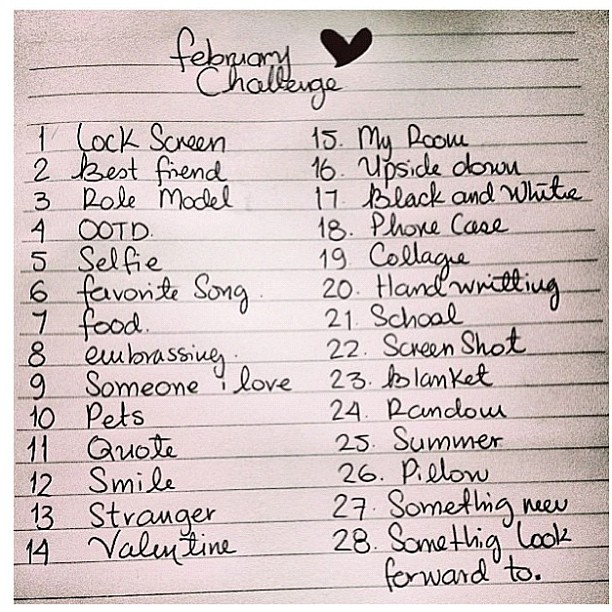 february
Challenge
1 Lock Screen
2 Best friend
3 Role Model
4 OOTD.
5 Selfie
6 favorite Song.
7 food.
8 embrassing.
9 Someone i love
10 Pets
11 Quote
12 Smile
13 Stranger
14 Valentine
15. My Room
16. Upside down
17. Black and White
18. Phone Case
19. Collage
20. Hand writting
21. School
22. Screen Shot
23. Blanket
24. Random
25. Summer
26. Pillow
27. Somethig new
28. Somethig look
forward to.